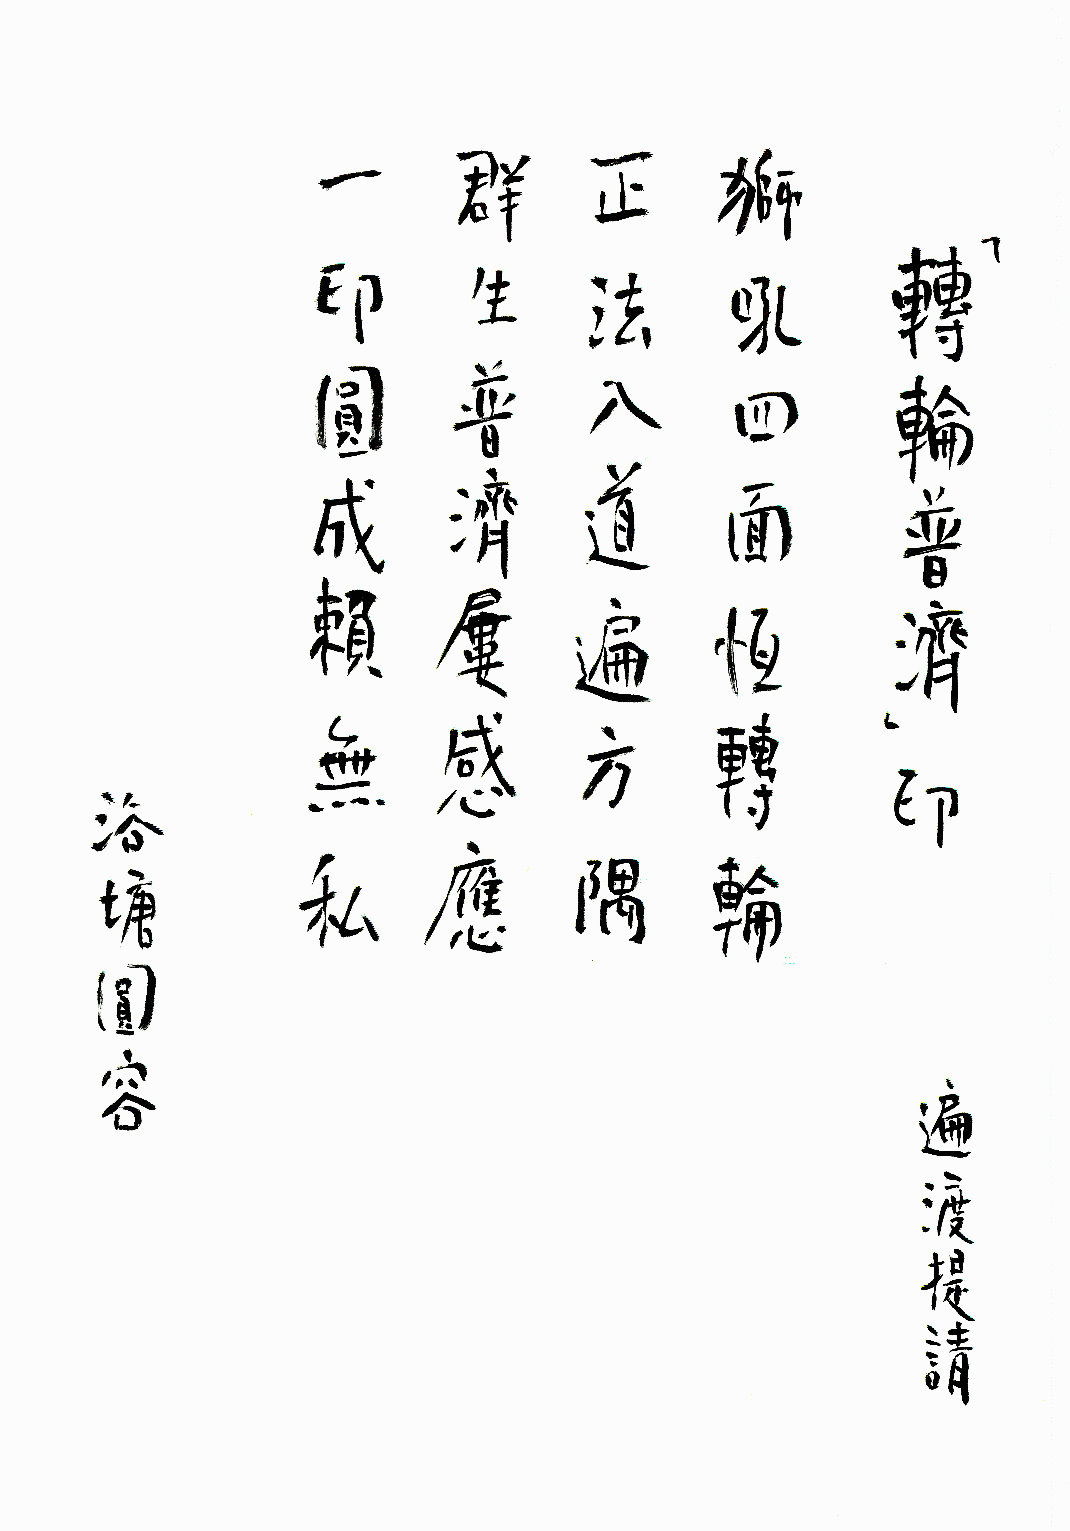 「轉輪普濟」印
遍渡提請
獅吼四面恆轉輪
正法入道遍方隅
群生普濟屢感應
一印圓成賴無私
浴塘圓容